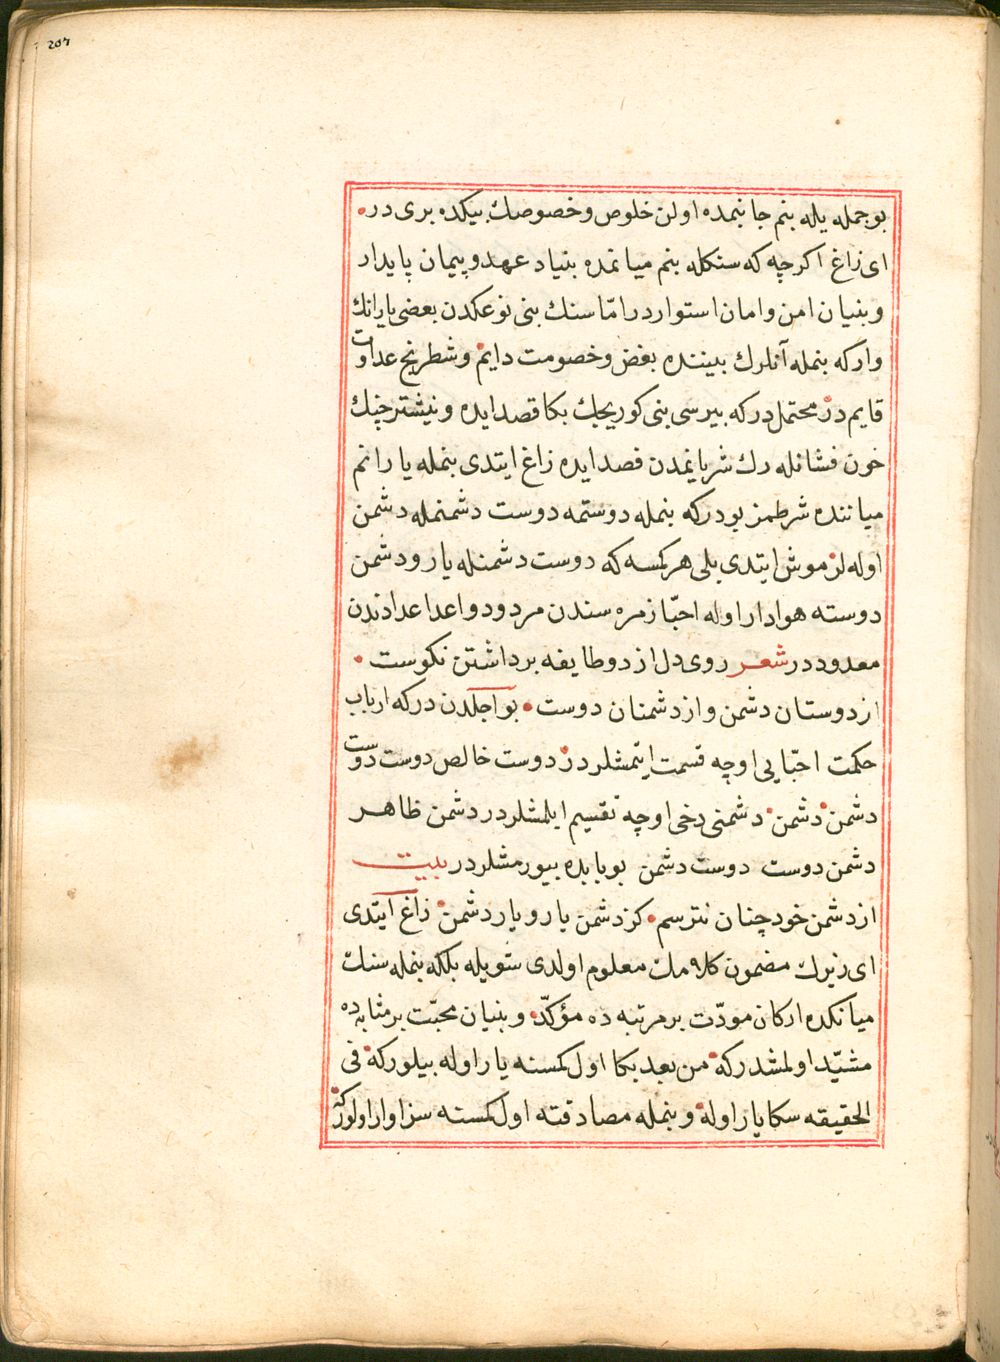 207
بوجمله يله بنم جانبمده اولن خلوص وخصوصك بيكده برى در
اى زاغ اكرچه كه سنكله بنم ميانمده بنياد عهد و پيمان پايدار
و بنيان امن و امان استوار در امّا سنك بنى نوعكدن بعضى يارانك
واركه بنمله آنلرك بيننده بغض و خصومت دايم و شطرنج عداوت
قايم در محتمل دركه بيرسى بنى كوريجك بكا قصد ايده و نيشتر چنك
خون فشانله رك شريانمدن فصد ايده زاغ ايتدى بنمله يارانم
مياننده شرطمز بودركه بنمله دوستمه دوست دشمنمله دشمن
اوله لر موش ايتدى بلى هر كمسه كه دوست دشمنله يار و دشمن
دوسته هوادار اوله احبّا زمره سندن مردود و اعدا عدادندن
معدود در شعر روى دل از دو طايفه برداشتن نكوست
از دوستان دشمن و از دشمنان دوست بو اجلدن دركه ارباب
حكمت احبّايى اوچه قسمت ايتمشلردر دوست خالص دوست دوست
دشمن دشمن دشمنى دخى اوچه تقسيم ايلمشلردر دشمن ظاهر
دشمن دوست دوست دشمن بوبابده بيورمشلردر بيت
از دشمن خود چنان نترسم كز دشمن يار و يار دشمن زاغ ايتدى
اى زيرك مضمون كلامك معلوم اولدى شويله بلكه بنمله سنك
ميانكده اركان مودّت بر مرتبه ده مؤكّد و بنيان محبّت بر مثابه ده
مشيّد اولمشدركه من بعد بكا اول كمسنه يار اوله بيلوركه فى
الحقيقه سكا يار اوله و بنمله مصادقته اول كمسنه سزاوار اولوركه